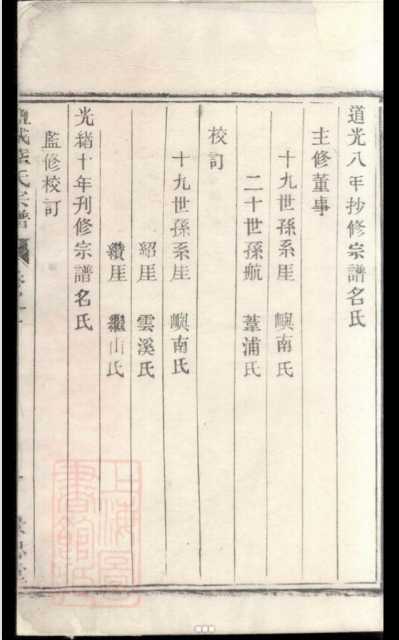 道光八年抄修宗譜名氏
主修董事
十九世孫系厓 嶼南氏
二十世孫航 葦浦氏
校訂
十九世孫系厓 嶼南氏
紹厓 雲溪氏
纘厓 繼山氏
光緒十年刊修宗譜名氏
監修校訂
氏宗譜
上海圖書館藏